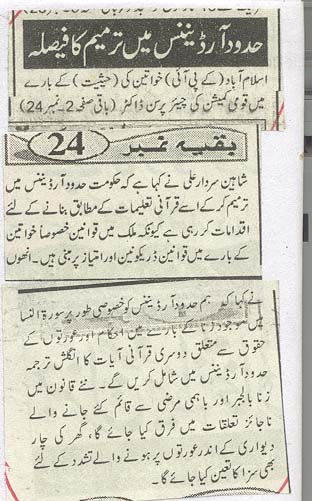 حدود آرڈیننس میں ترمیم کا فیصلہ
اسلام آباد (کے پی آئی) خواتین کی (حیثیت) کے بارے
میں قومی کمیشن کی چیئر پرسن ڈاکٹر (باقی صفحہ 2۔ نمبر 24)
بقیہ نمبر 24
شاہین سردار علی نے کہا ہے کہ حکومت حدود آرڈیننس میں
ترمیم کر کے اسے قرآنی تعلیمات کے مطابق بنانے کے لئے
اقدامات کر رہی ہے کیونکہ ملک میں قوانین خصوصاً خواتین
کے بارے میں قوانین ڈریکونین اور امتیاز پر مبنی ہیں۔ انھوں
نے کہا کہ ہم حدود آرڈیننس کو خصوصی طور پر سورۃ النسا
میں موجود زنا کے بارے میں احکام اور عورتوں کے
حقوق سے متعلق دوسری قرآنی آیات کا انگلش ترجمہ
حدود آرڈیننس میں شامل کریں گے۔ نئے قانون میں
زنا بالجبر اور باہمی مرضی سے قائم کئے جانے والے
ناجائز تعلقات میں فرق کیا جائے گا، گھر کی چار
دیواری کے اندر عورتوں پر ہونے والے تشدد کے لئے
بھی سزا کا تعین کیا جائے گا۔